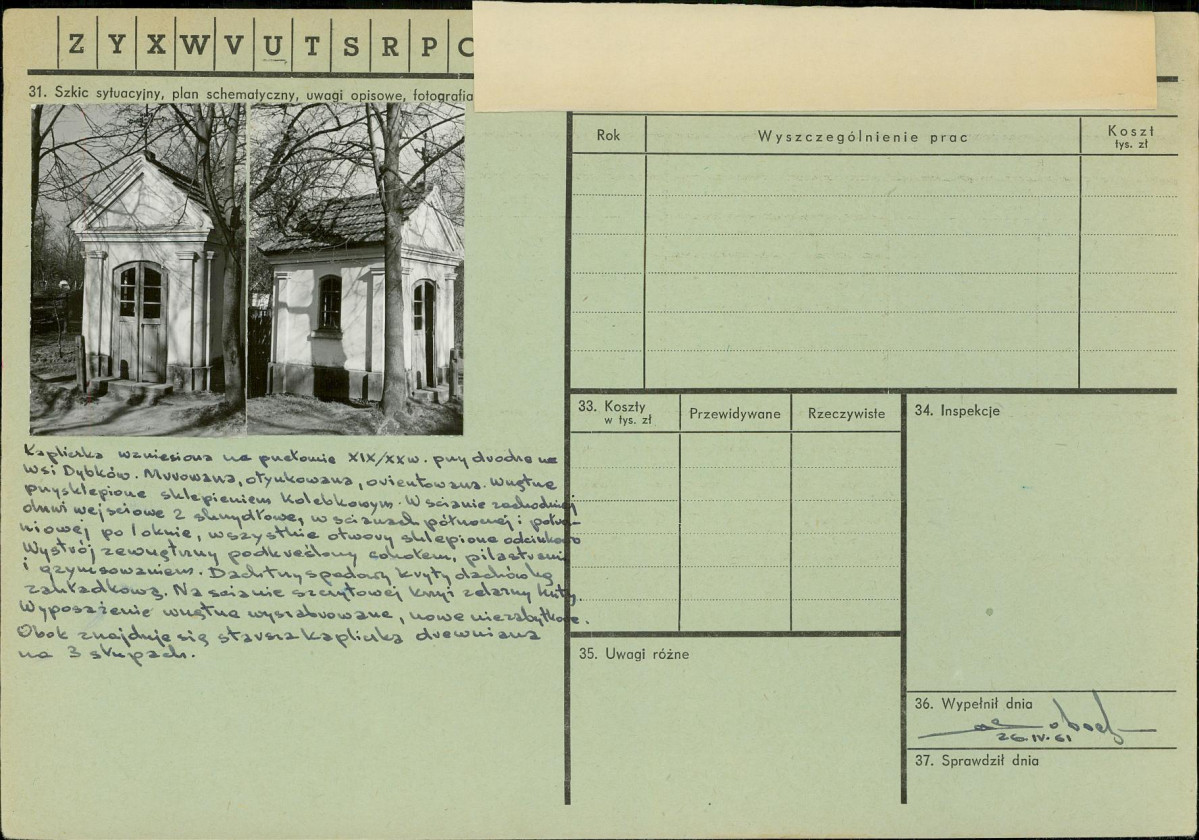 Z Y X W V U T S R P O
31. Szkic sytuacyjny, plan schematyczny, uwagi opisowe, fotografia
Kapliczka wzniesiona na przełomie XIX/XX w. przy drodze we
wsi Dybków. Murowana, otynkowana, orientowana. Wnętrze
przysklepione sklepieniem kolebkowym. W ścianie zachodniej
drzwi wejściowe 2 skrzydłowe, w ścianach północnej i połud-
niowej po 1 oknie, wszystkie otwory sklepione odcinkowo
Wystrój zewnętrzny podkreślony cokołem, pilastrami
i gzymsowaniem. Dach trzyspadowy kryty dachówką
zakładkową. Na ścianie szczytowej krzyż żelazny kuty.
Wyposażenie wnętrza wyszabrowane, nowe niezabytkowe.
Obok znajduje się starsza kapliczka drewniana
na 3 słupach.
Rok
Wyszczególnienie prac
Koszt
tys. zł
33. Koszty
w tys. zł
Przewidywane
Rzeczywiste
34. Inspekcje
35. Uwagi różne
36. Wypełnił dnia
26.IV.61
37. Sprawdził dnia